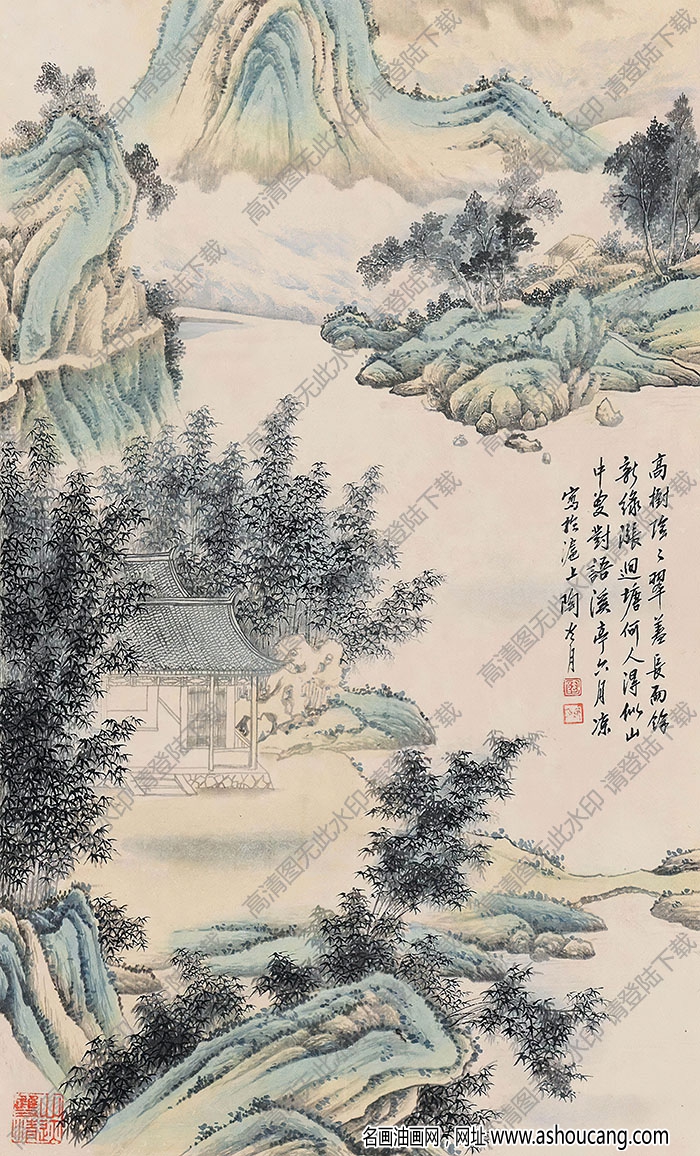 高樹陰〻翠蓋長雨餘
新綠漲迴塘何人得似山
中叟對語溪亭六月凉
寫於滬上陶冷月
高清图无此水印 请登陆下载
名画油画网*网址 www.ashoucang.com